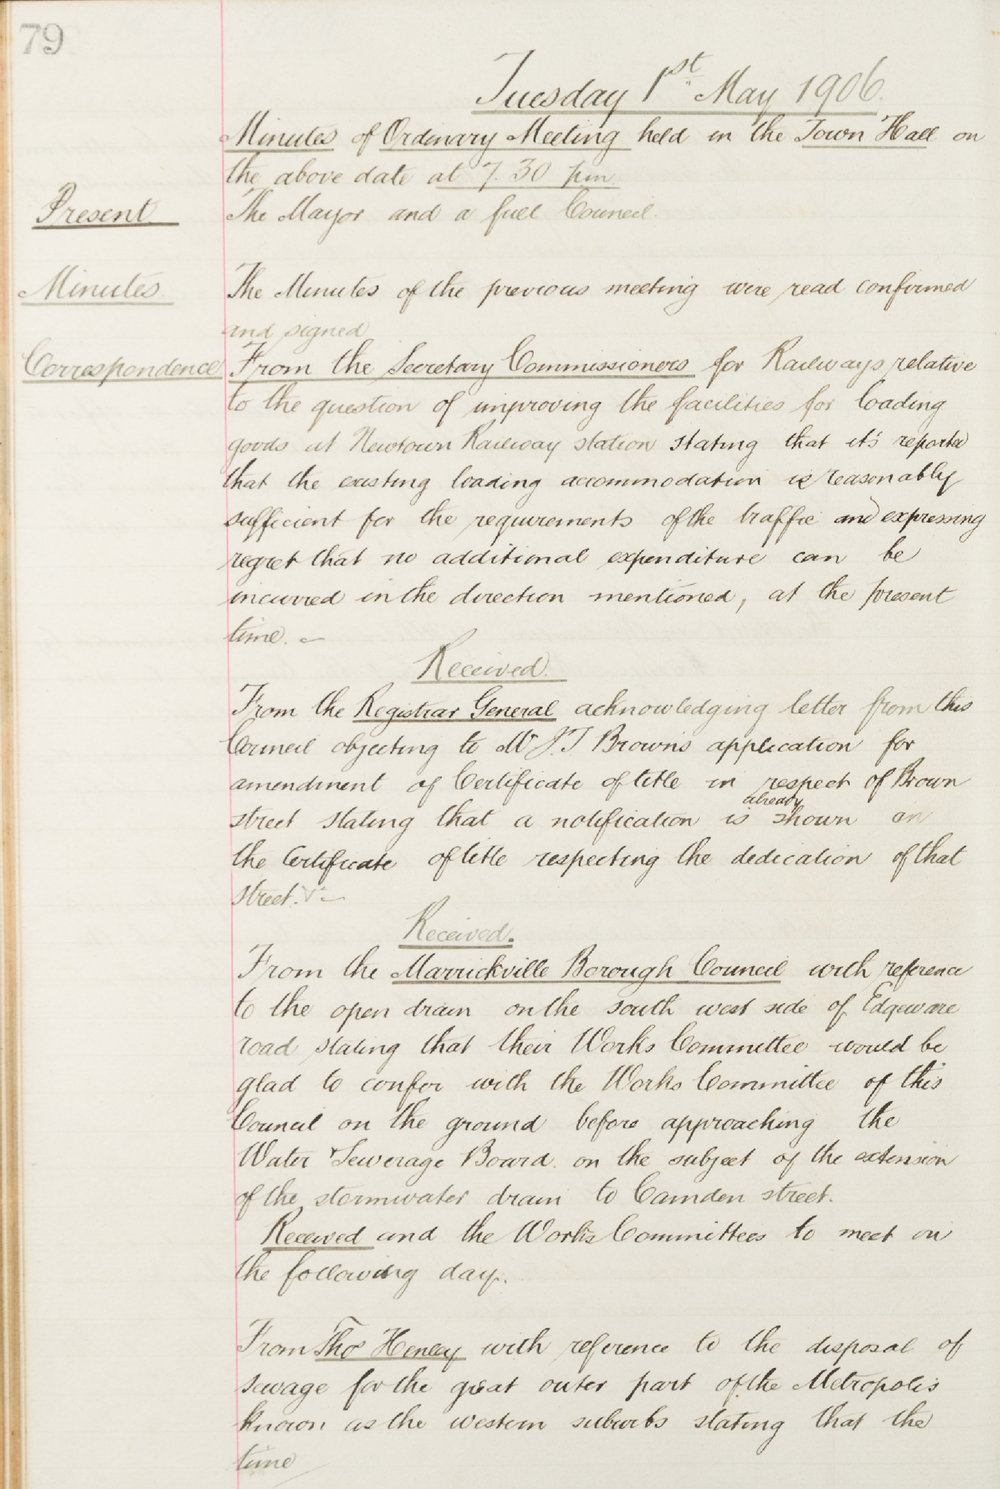 79
Tuesday 1st May 1906.
Minutes of Ordinary Meeting held in the Town Hall on
the above date at 7.30 pm
Present
The Mayor and a full Council.
Minutes.
The Minutes of the previous meeting were read confirmed
and signed
Correspondence
From the Secretary Commissioners for Railways relative
to the question of improving the facilities for loading
goods at Newtown Railway station stating that it's reported
that the existing loading accommodation is reasonably
sufficient for the requirements of the traffic and expressing
regret that no additional expenditure can be
incurred in the direction mentioned, at the present
time. —
Received.
From the Registrar General acknowledging letter from this
Council objecting to Mr J.T Brown's application for
amendment of Certificate of title in respect of Brown
already
street stating that a notification is shown on
the Certificate of title respecting the dedication of that
street. —
Received.
From the Marrickville Borough Council with reference
to the open drain on the south west side of Edgeware
road stating that their Works Committee would be
glad to confer with the Works Committee of this
Council on the ground before approaching the
Water & Sewerage Board. on the subject of the extension
of the stormwater drain to Camden street.
Received and the Works Committees to meet on
the following day.
From Thos Henley with reference to the disposal of
sewage for the great outer part of the Metropolis
known as the western suburbs stating that the
time